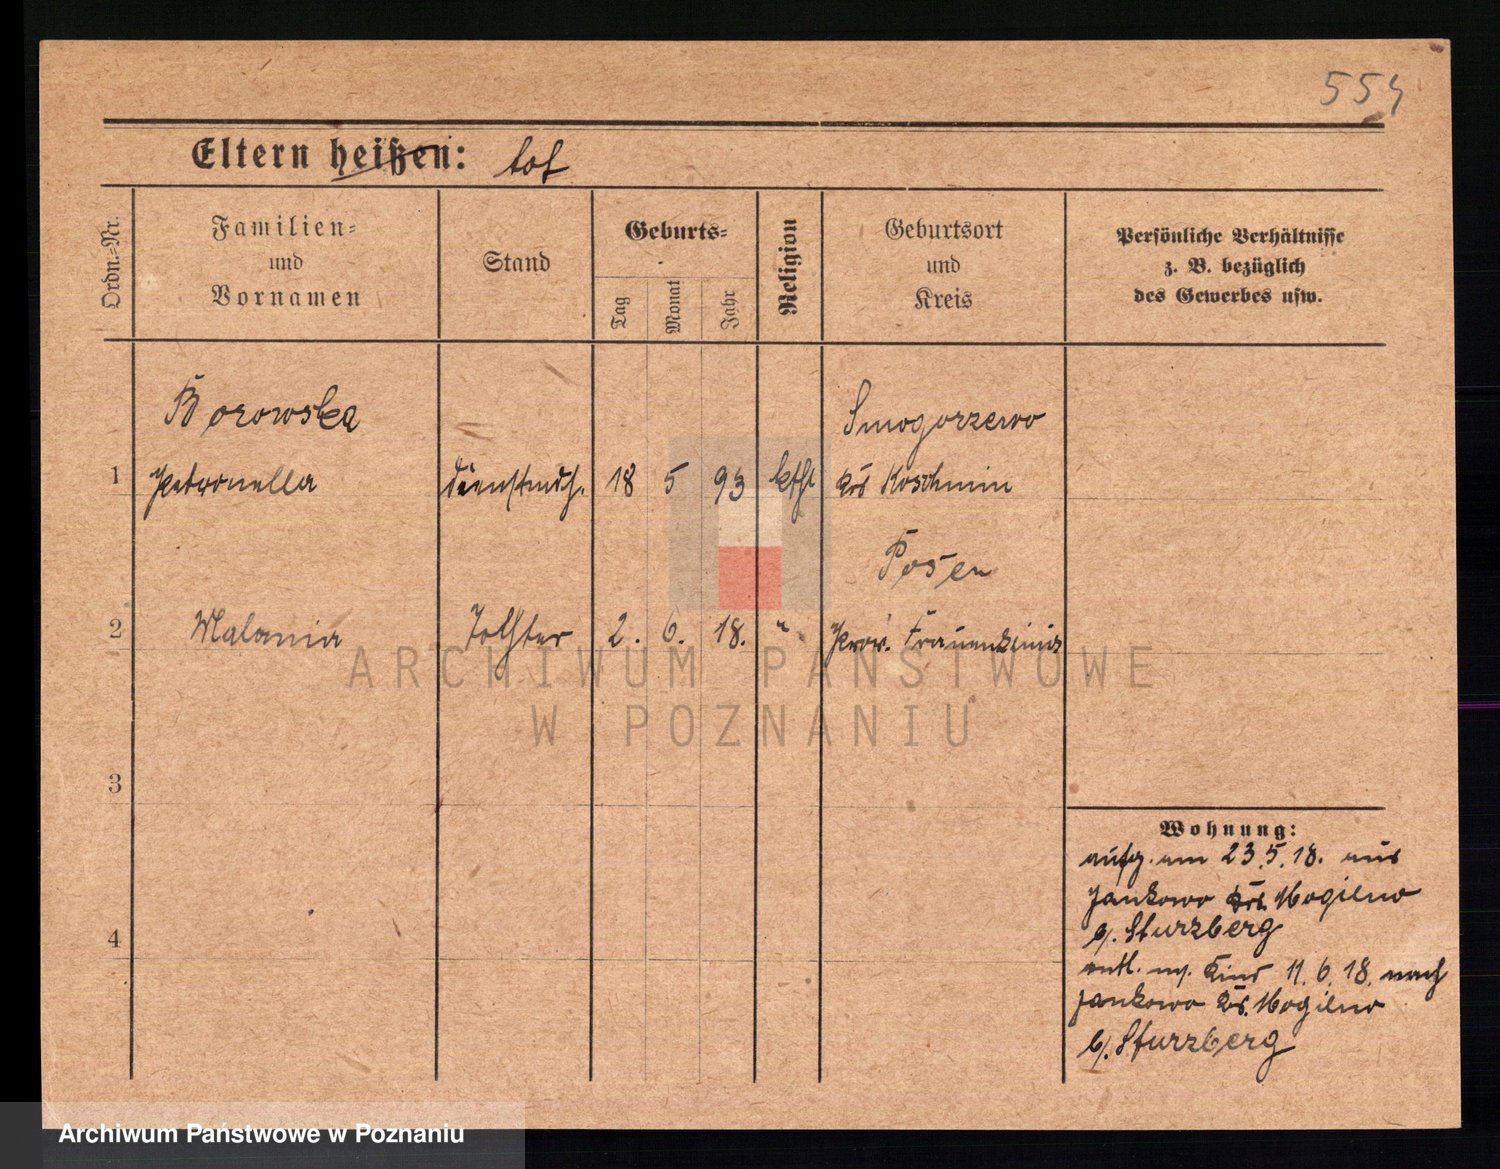 554
Eltern heißen: tot
Ordn.=Nr.
Familien=
und
Vornamen
Stand
Geburts=
Tag
Monat
Jahr
Religion
Geburtsort
und
Kreis
Persönliche Verhältnisse
z. B. bezüglich
des Gewerbes usw.
Borowska Smogorzewo
1 Petronella dienstmdch. 18 5 93 kthl Krs Koschmin
Posen
2 Malania Tochter 2. 6. 18. " Prov. Frauenklinik
3
4
Wohnung:
aufg. am 23.5.18. aus
Jankowo Krs. Mogilno
b/. Sturzberg
entl. m/. Kind 11.6.18. nach
Jankowo Krs. Mogilno
b/. Sturzberg
ARCHIWUM PAŃSTWOWE
W POZNANIU
Archiwum Państwowe w Poznaniu